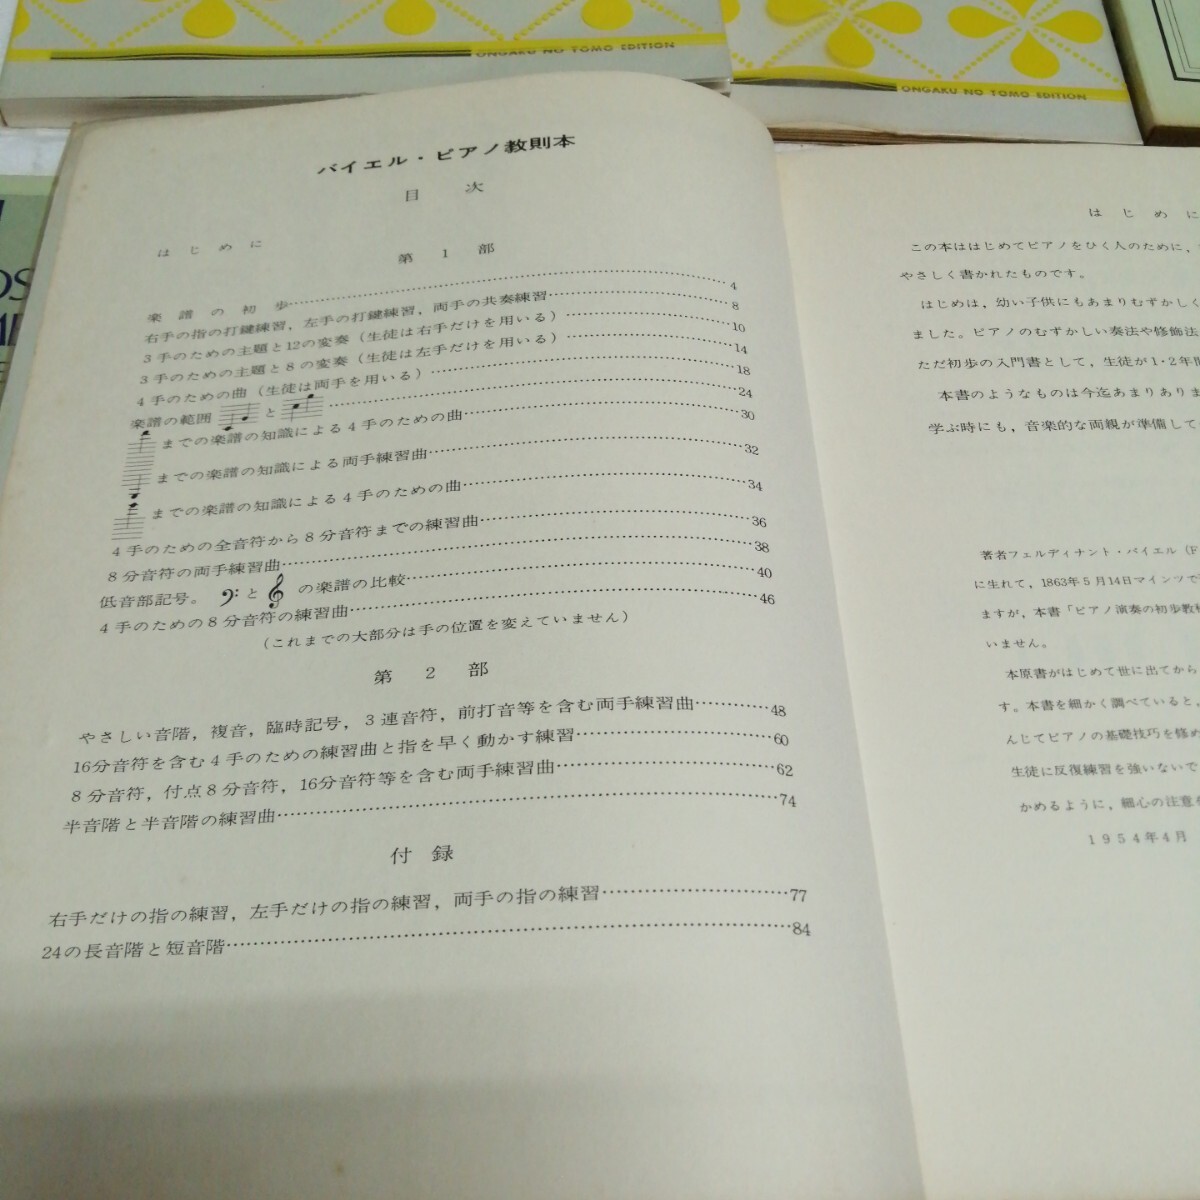 ONGAKU NO TOMO EDITION
ONGAKU NO TOMO EDITION
バイエル・ピアノ教則本
目　次
はじめに
第　1　部
楽譜の初歩……4
右手の指の打鍵練習，左手の打鍵練習，両手の共奏練習……8
3手のための主題と12の変奏（生徒は右手だけを用いる）……10
3手のための主題と8の変奏（生徒は左手だけを用いる）……14
4手のための曲（生徒は両手を用いる）……18
楽譜の範囲　と　……24
までの楽譜の知識による4手のための曲……30
までの楽譜の知識による両手練習曲……32
までの楽譜の知識による4手のための曲……34
4手のための全音符から8分音符までの練習曲……36
8分音符の両手練習曲……38
低音部記号。𝄢と𝄞の楽譜の比較……40
4手のための8分音符の練習曲……46
（これまでの大部分は手の位置を変えていません）
第　2　部
やさしい音階，複音，臨時記号，3連音符，前打音等を含む両手練習曲……48
16分音符を含む4手のための練習曲と指を早く動かす練習……60
8分音符，付点8分音符，16分音符等を含む両手練習曲……62
半音階と半音階の練習曲……74
付　録
右手だけの指の練習，左手だけの指の練習，両手の指の練習……77
24の長音階と短音階……84
はじめに
この本ははじめてピアノをひく人のために，
やさしく書かれたものです。
はじめは，幼い子供にもあまりむずかしく
ました。ピアノのむずかしい奏法や修飾法
ただ初歩の入門書として，生徒が1・2年間
本書のようなものは今迄あまりありま
学ぶ時にも，音楽的な両親が準備して
著者フェルディナント・バイエル（F
に生れて，1863年5月14日マインツで
ますが，本書「ピアノ演奏の初歩教
いません。
本原書がはじめて世に出てから
す。本書を細かく調べていると，
んじてピアノの基礎技巧を修め
生徒に反復練習を強いないで
かめるように，細心の注意を
1954年4月